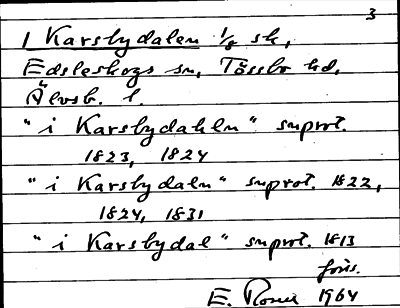 3
1 Karsbydalen 1/8 sk,
Edsleskogs sn, Tössbo hd,
Älvsb. l.
"i Karsbydahln" snprot.
1823, 1824
"i Karsbydaln" snprot. 1822,
1824, 1831
"i Karsbydal" snprot. 1813
förs.
E. 1964